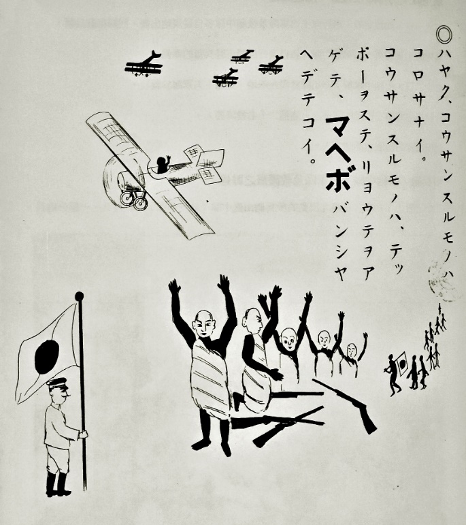 ◎ハヤク、コウサンスルモノハ
コロサナイ。
コウサンスルモノハ、テッ
ポーヲステ、リョウテヲア
ゲテ、マヘボバンシャ
ヘデテコイ。